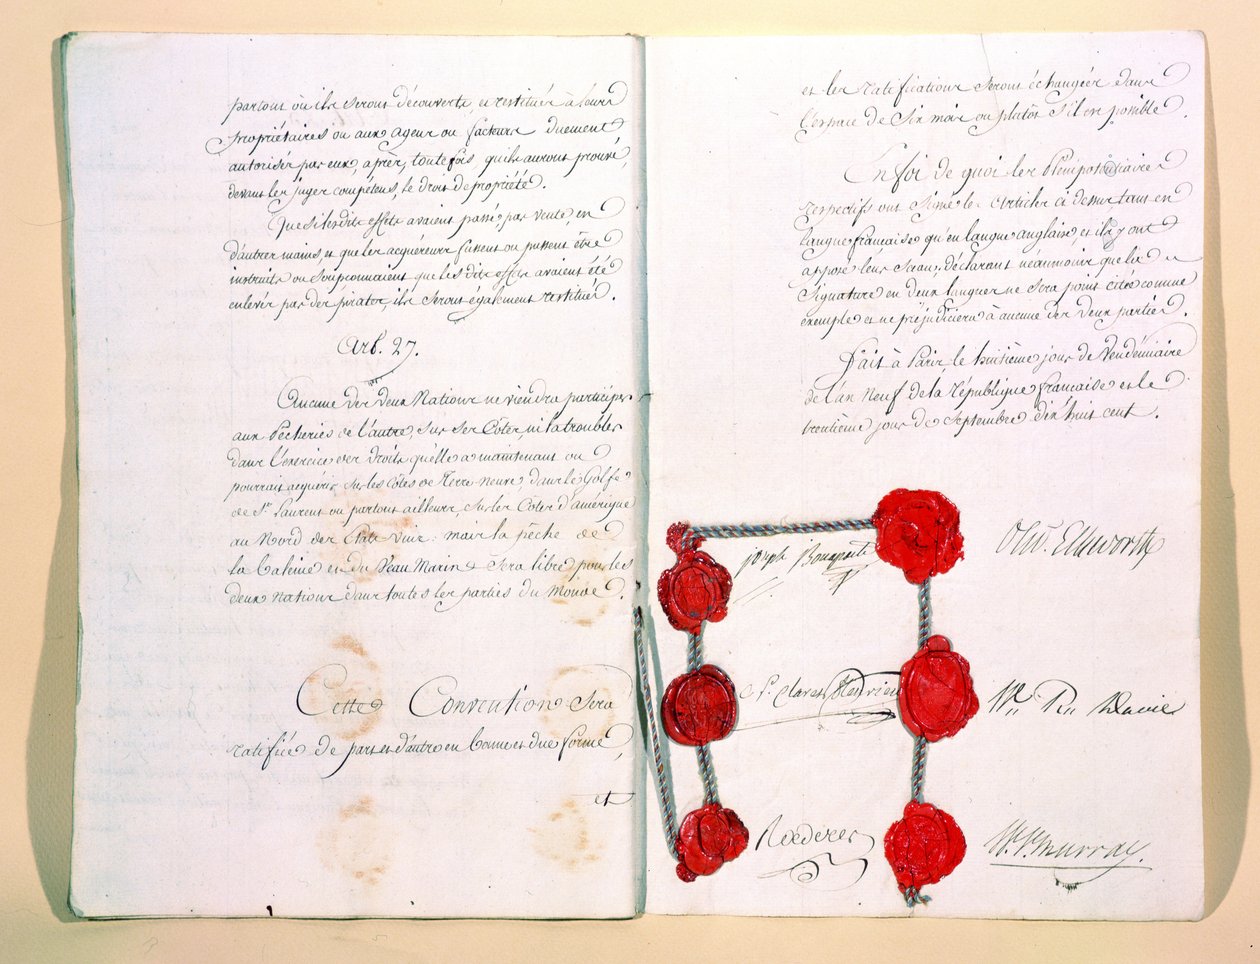 partout où ils seront découverts, et restitués à leurs
propriétaires ou aux agens ou facteurs duement
autorisés par eux, après, toutefois qu'ils auront prouvé,
devant les juges competens, le droit de propriété.
Que si lesdits effets avaient passé, par vente, en
d'autres mains, et que les acquéreurs fussent ou pussent être
instruits ou soupçonnaient que lesdits effets avaient été
enlevés par des pirates, ils seront également restitués.
Art. 27.
Aucune des deux Nations ne viendra participer
aux Pêcheries de l'autre, sur ses Côtes, ni la troubler
dans l'exercice des droits qu'elle a maintenant ou
pourrait acquérir sur les côtes de Terre-Neuve, dans le Golfe
de St. Laurent ou partout ailleurs, sur les Côtes d'amérique
au Nord des Etats-Unis. mais la pêche de
la Baleine et du Veau Marin sera libre pour les
deux nations dans toutes les parties du Monde.
Cette Convention sera
ratifiée de part et d'autre en bonne et due forme,
et
et les ratifications seront échangées dans
l'espace de Six mois ou plutôt s'il est possible.
En foi de quoi les Plénipotentiaires
respectifs ont Signé les articles ci dessus tant en
langue française qu'en langue anglaise, et ils y ont
apposé leur Sceau, déclarant néanmoins que la
Signature en deux langues ne sera point citée comme
exemple et ne préjudiciera à aucune des deux parties.
Fait à Paris, le huitième jour de Vendémiaire
de l'an Neuf de la république française et le
trentième jour de Septembre dix huit cent.
Joseph Bonaparte
Olivr. Ellsworth
Fleurieu
W. R. Davie
Rœderer
W. V. Murray.